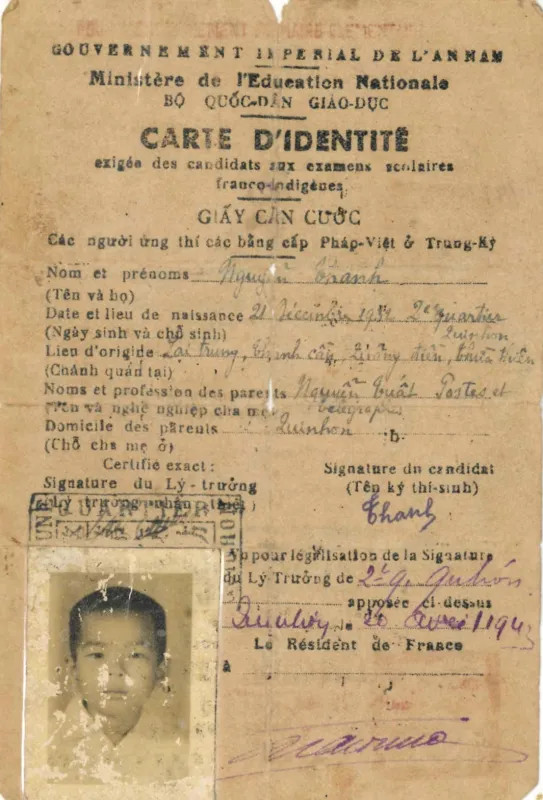 GOUVERNEMENT IMPERIAL DE L'ANNAM
Ministère de l'Education Nationale
BỘ QUỐC-DÂN GIÁO-DỤC
CARTE D'IDENTITÉ
exigée des candidats aux examens scolaires
franco-indigènes
GIẤY CĂN CƯỚC
Các người ứng thí các bằng cấp Pháp-Việt ở Trung-Kỳ
Nom et prénoms Nguyễn Thanh
(Tên và họ)
Date et lieu de naissance 21 Décembre 2e quartier
(Ngày sinh và chỗ sinh) Quinhon
Lieu d'origide Lai Trung, Thừa Thiên
(Chánh quán tại)
Noms et profession des parents Nguyễn Postes et
(Tên và nghề nghiệp cha mẹ) télégraphes
Domicile des parents Quinhon
(Chỗ cha mẹ ở)
Certifié exact:
Signature du Lý-trưởng
Signature du candidat
(Tên ký thí-sinh)
Thanh
QUARTIER
Vu pour légalisation de la Signature
du Lý Trưởng de 2e q. Quinhon
apposée ci-dessus
Quinhon, le 20 Avril 194
Le Résident de France
à